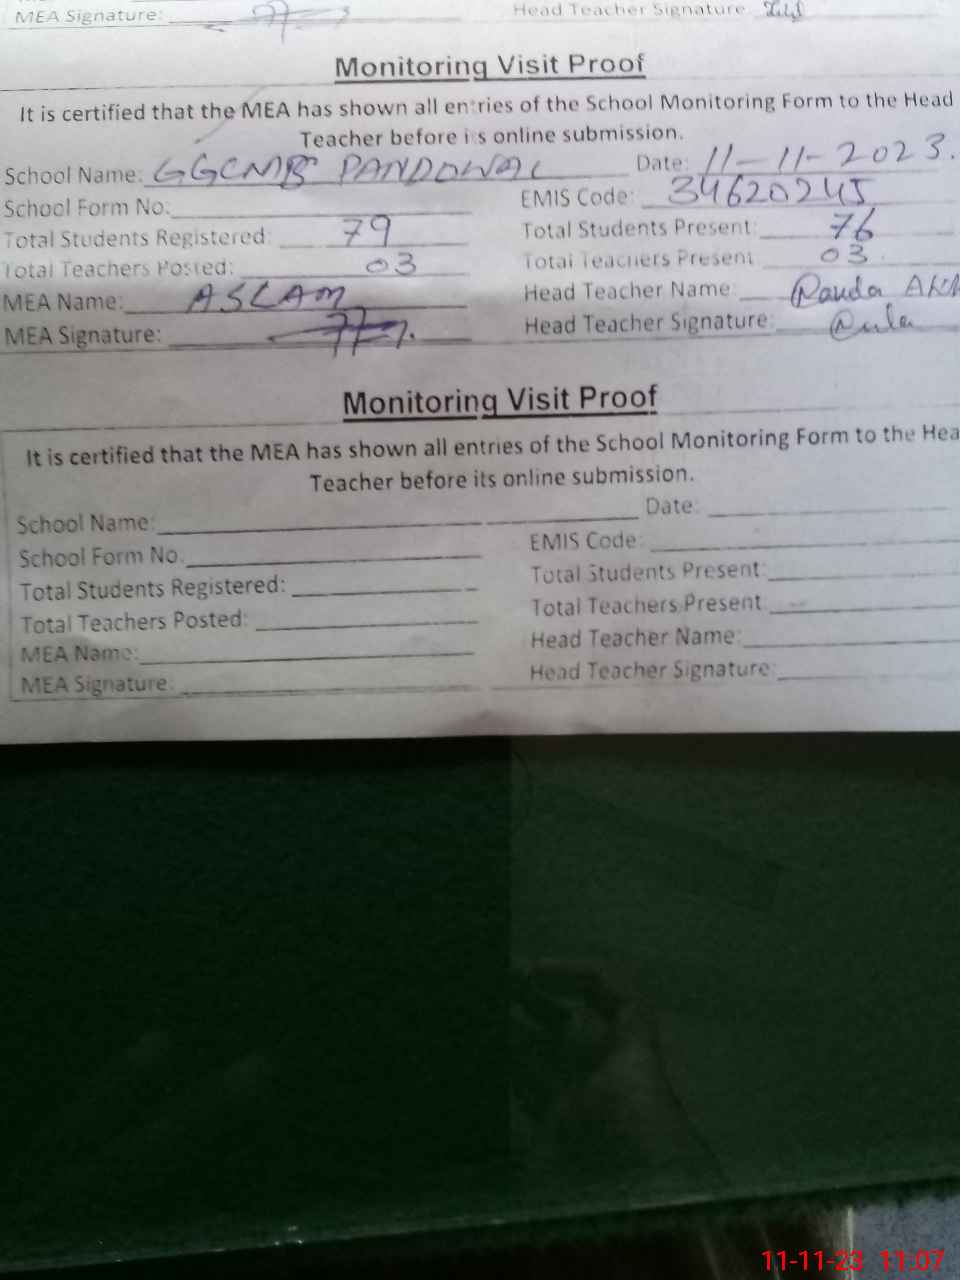 MEA Signature: Head Teacher Signature
Monitoring Visit Proof
It is certified that the MEA has shown all entries of the School Monitoring Form to the Head
Teacher before its online submission.
School Name: GGCMB PANDOWAL Date: 11-11-2023.
School Form No: EMIS Code: 34620245
Total Students Registered: 79 Total Students Present: 76
Total Teachers Posted: 03 Total Teachers Present 03
MEA Name: ASLAM Head Teacher Name:
MEA Signature: Head Teacher Signature:
Monitoring Visit Proof
It is certified that the MEA has shown all entries of the School Monitoring Form to the Hea
Teacher before its online submission.
School Name: Date:
School Form No. EMIS Code:
Total Students Registered: Total Students Present:
Total Teachers Posted: Total Teachers Present
MEA Name: Head Teacher Name:
MEA Signature: Head Teacher Signature:
11-11-23 11:07